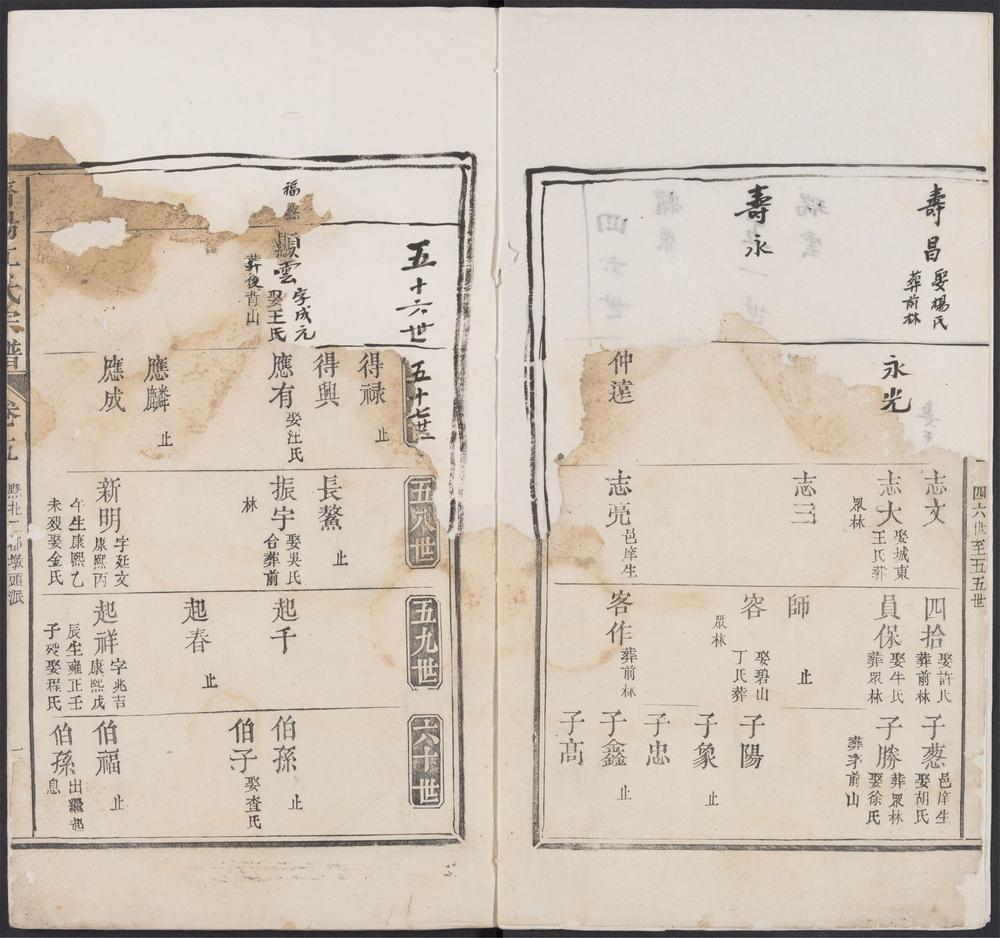 四六世至五五世
壽昌
娶楊氏
葬前林
壽永
永光
仲達
志文
志大
娶城東
王氏葬
眾林
志三
志亮
邑庠生
四拾
娶許氏
葬前林
員保
娶牛氏
葬眾林
師
止
容
娶碧山
丁氏葬
眾林
客作
葬前林
子蔥
邑庠生
娶胡氏
子勝
葬眾林
娶徐氏
葬茅前山
子陽
子象
止
子忠
子鑫
止
子高
五十六世
福
顯雲
字成元
娶王氏
葬後青山
五十七世
得禄
止
得興
應有
娶汪氏
應麟
止
應成
五八世
長鰲
止
振宇
娶吳氏
合葬前
林
新明
字延文
康熙丙
午生康熙乙
未歿娶金氏
五九世
起千
起春
止
起祥
字兆吉
康熙戊
辰生雍正壬
子歿娶程氏
六十世
伯孫
止
伯子
娶査氏
伯福
止
伯孫
出繼起
息
氏宗譜
卷九
墩頭派
一